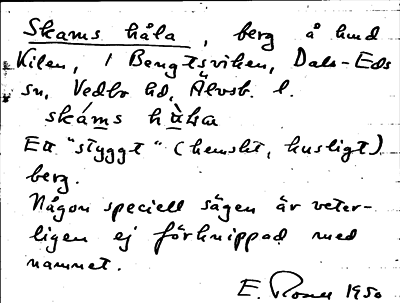 Skams håla, berg å hmd
Kilen, / Bengtsviken, Dals-Eds
sn, Vedbo hd, Älvsb. l.
skáms hù̀ḷa
Ett "styggt" (hemskt, kusligt)
berg.
Någon speciell sägen är veter-
ligen ej förknippad med
namnet.
E. 1950